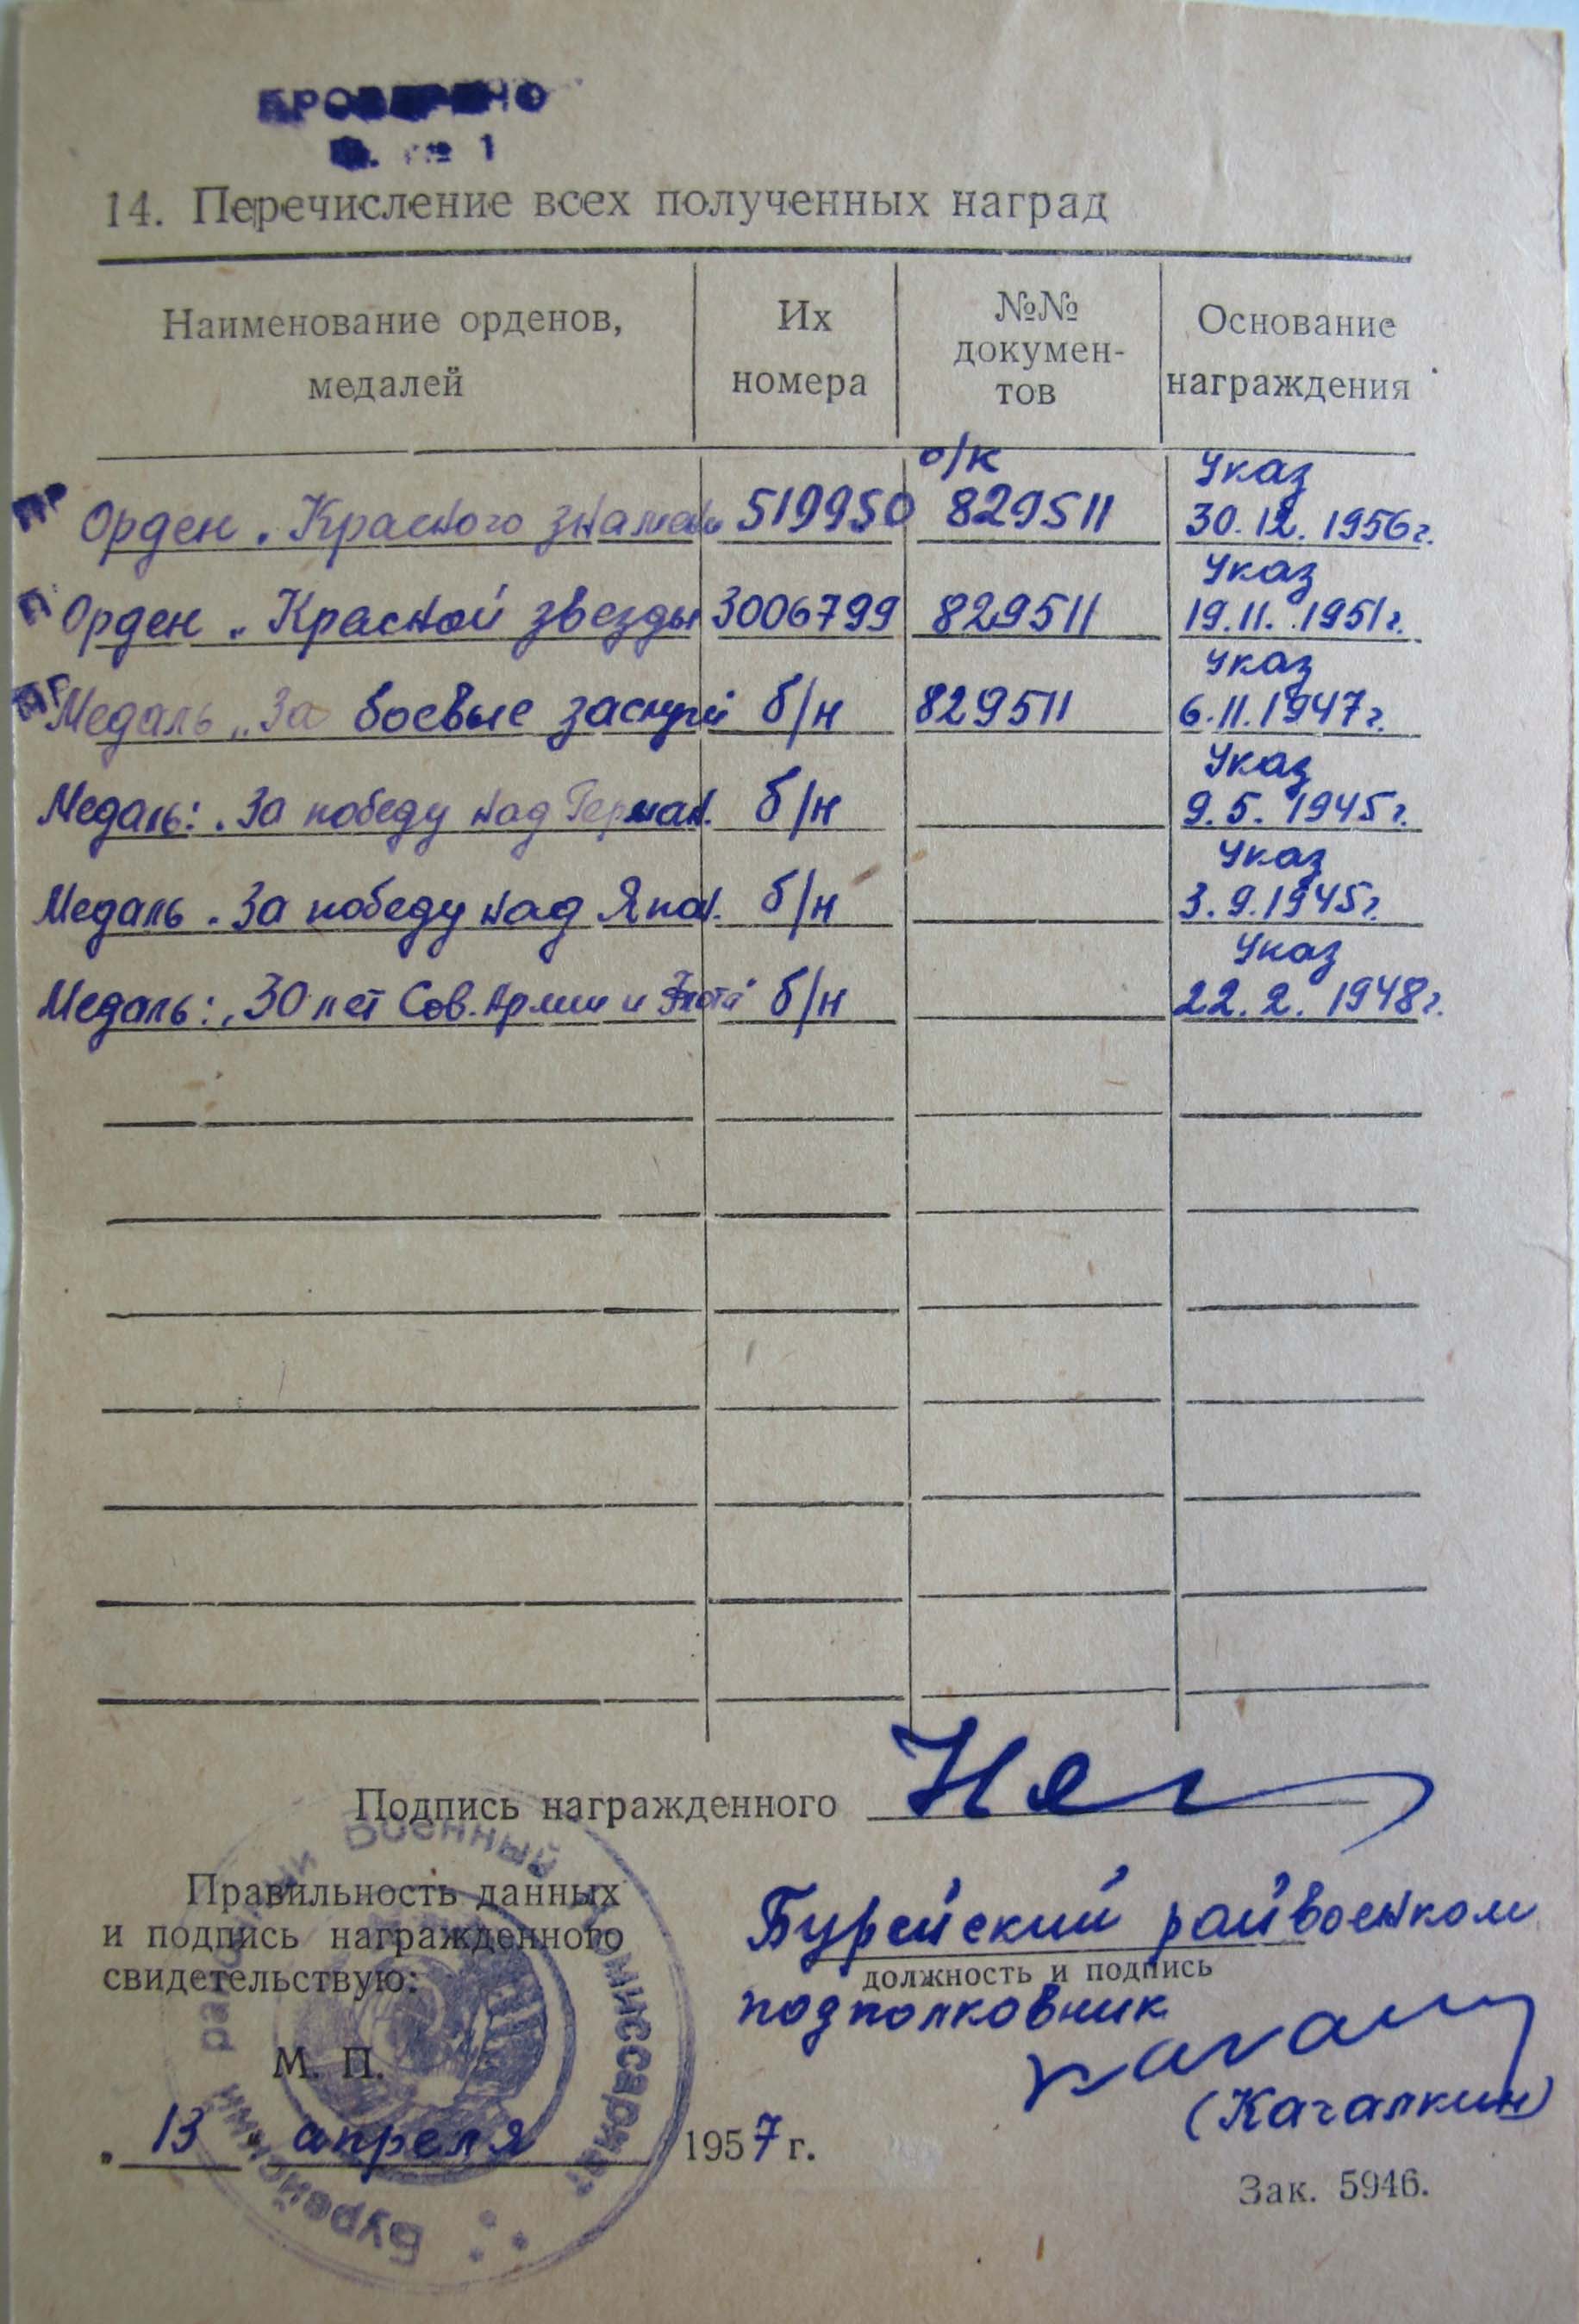 ПРОВЕРЕНО
№ 1
14. Перечисление всех полученных наград
Наименование орденов,
медалей
Их
номера
№№
докумен-
тов
Основание
награждения
пр Орден „Красного знамени 519950 о/к 829511 Указ 30.12.1956г.
п Орден „Красной звезды 3006799 829511 Указ 19.11.1951г.
пр Медаль „За боевые заслуги б/н 829511 Указ 6.11.1947г.
Медаль: „За победу над Герман. б/н Указ 9.5.1945г.
Медаль „За победу над Япон. б/н Указ 3.9.1945г.
Медаль: „30 лет Сов. Армии и Флота" б/н Указ 22.2.1948г.
Подпись награжденного
Правильность данных
и подпись награжденного
свидетельствую:
Бурейский райвоенком
должность и подпись
подполковник
М. П.
(Качалкин)
„13" апреля 1957 г.
Зак. 5946.
Бурейский районный военный комиссариат